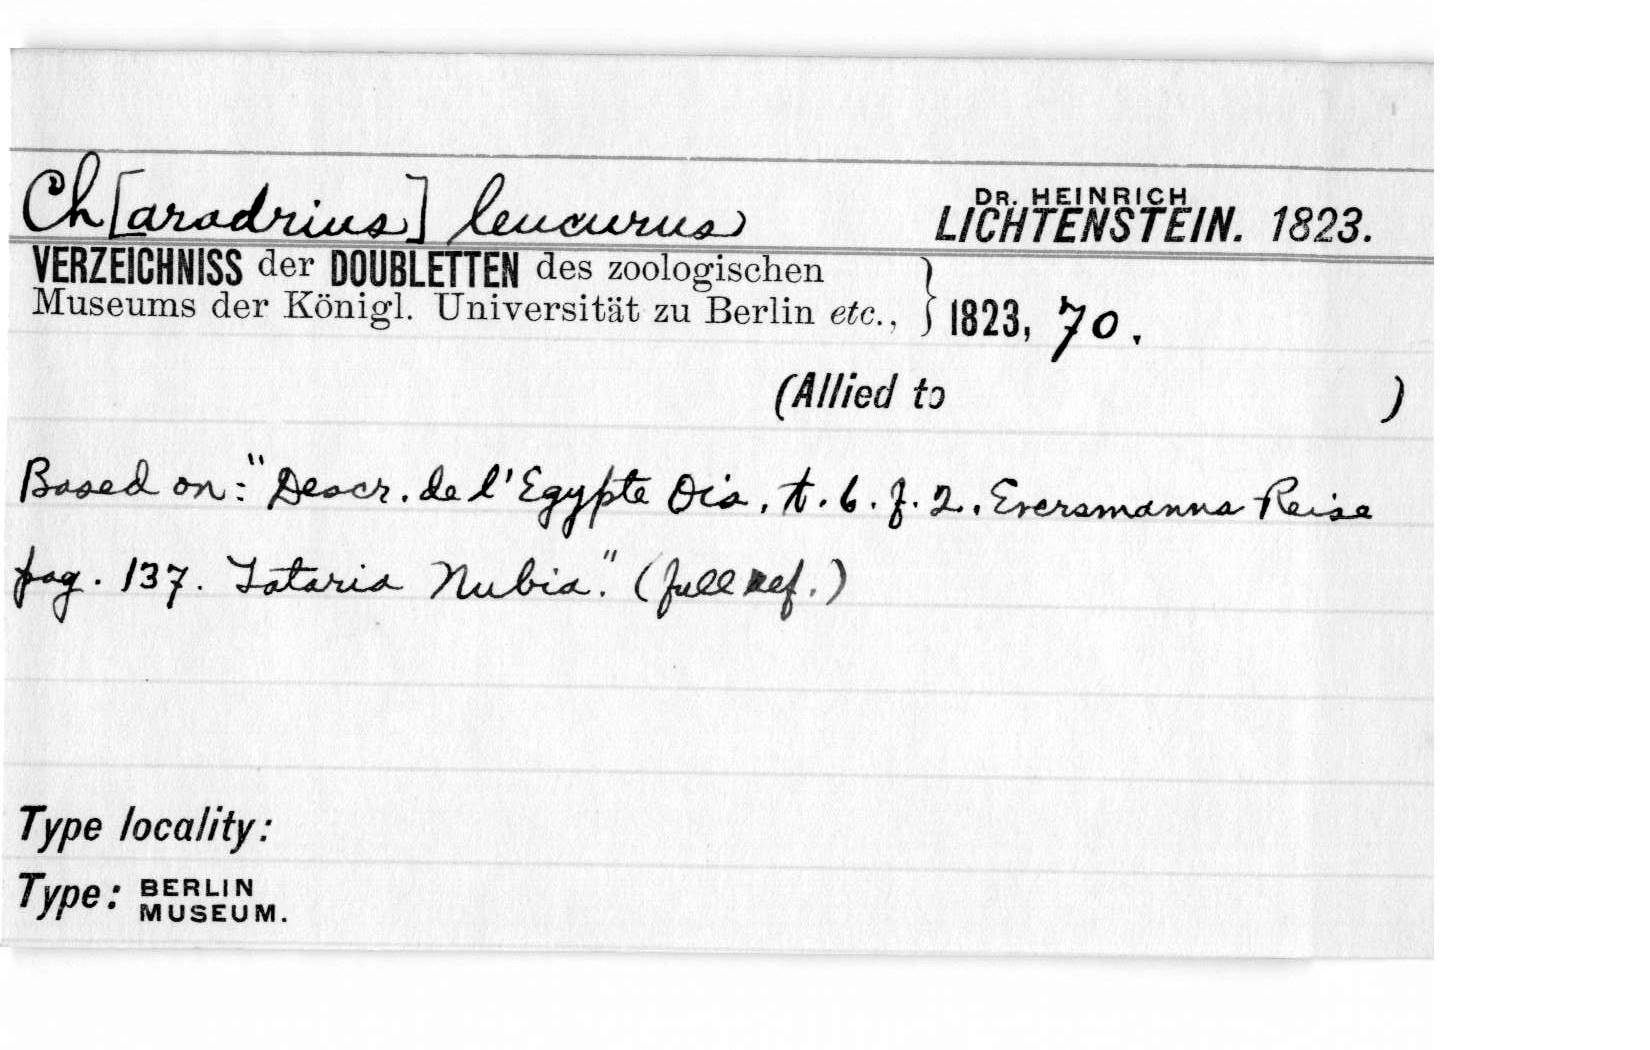 Ch[aradrius] leucurus
DR. HEINRICH
LICHTENSTEIN. 1823.
VERZEICHNISS der DOUBLETTEN des zoologischen
Museums der Königl. Universität zu Berlin etc., } 1823, 70.
(Allied to )
Based on: "Descr. de l'Egypte Ois. t. 6. f. 2. Eversmanns Reise
pag. 137. Tataria Nubia." (full ref.)
Type locality:
Type: BERLIN
MUSEUM.